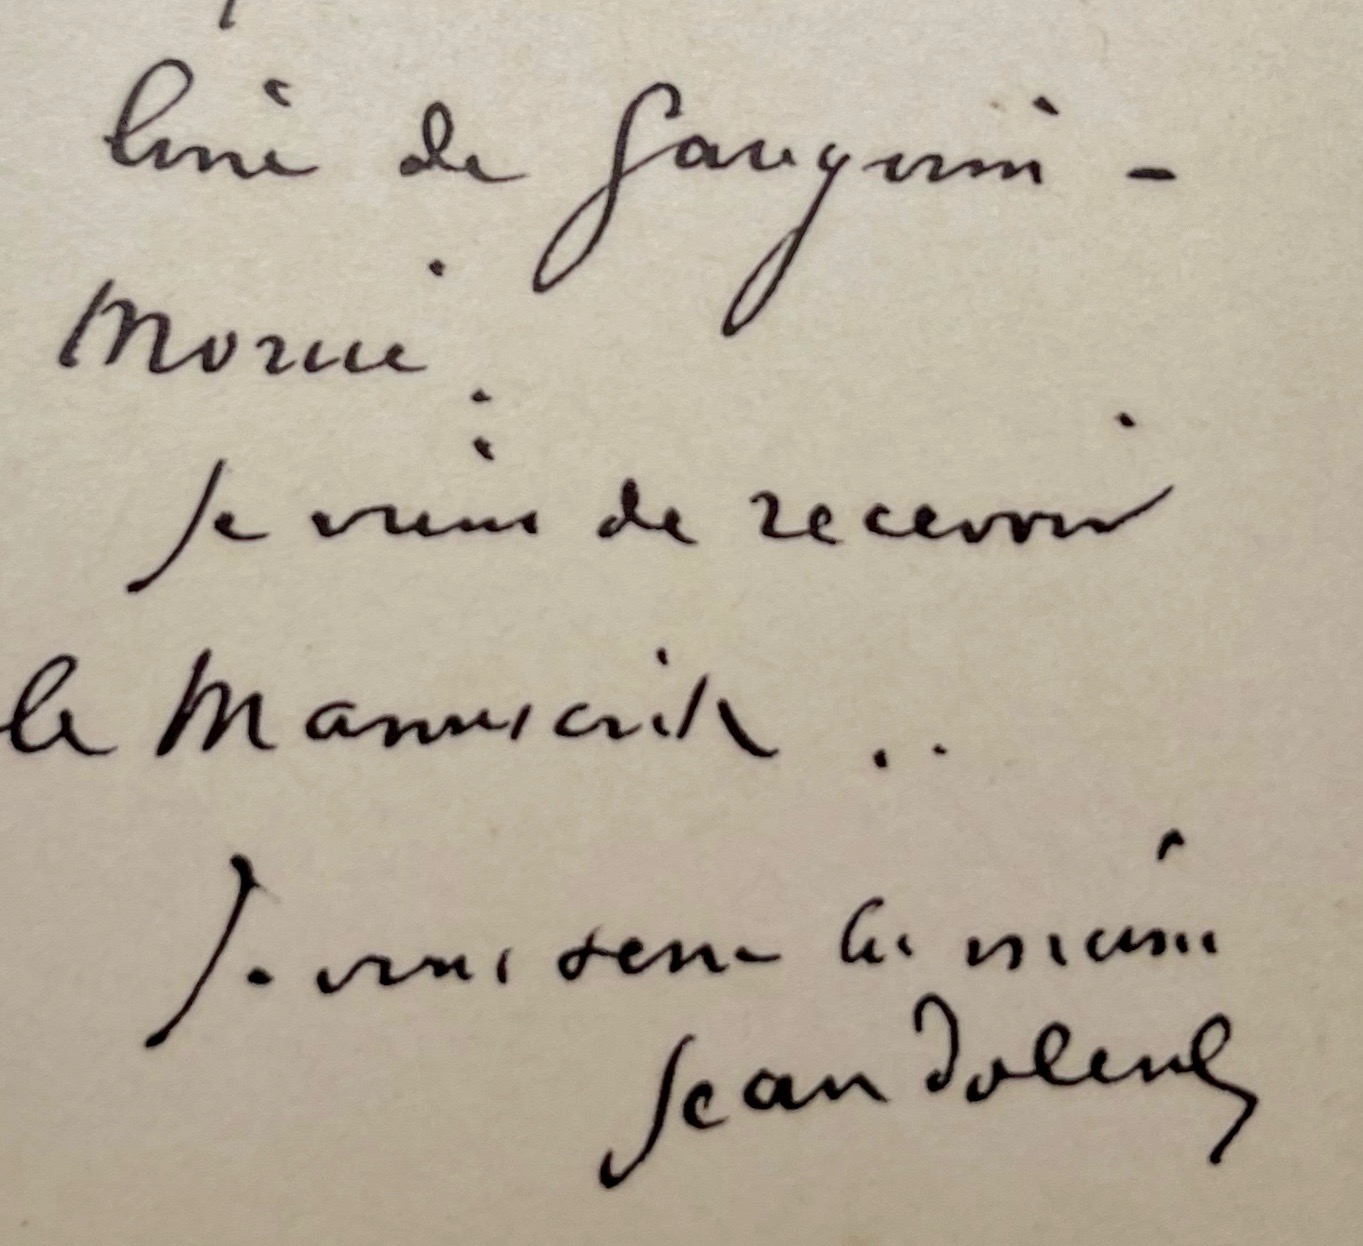 livre de Gauguin -
Morice.
Je viens de recevoir
le Manuscrit ..
Je vous serre les mains
Jean Dolent